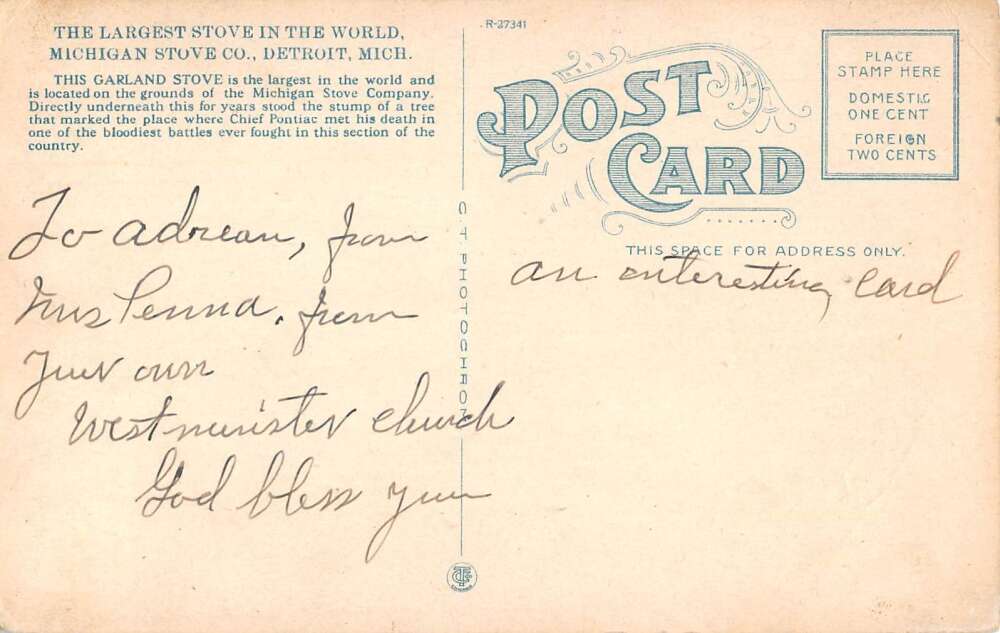 THE LARGEST STOVE IN THE WORLD,
MICHIGAN STOVE CO., DETROIT, MICH.
THIS GARLAND STOVE is the largest in the world and
is located on the grounds of the Michigan Stove Company.
Directly underneath this for years stood the stump of a tree
that marked the place where Chief Pontiac met his death in
one of the bloodiest battles ever fought in this section of the
country.
To Adrean, from
Mrs Penna. from
Your own
Westminister Church
God bless you
C.T. PHOTOCHROM
R-27341
POST
CARD
PLACE
STAMP HERE
DOMESTIC
ONE CENT
FOREIGN
TWO CENTS
THIS SPACE FOR ADDRESS ONLY.
an interesting card